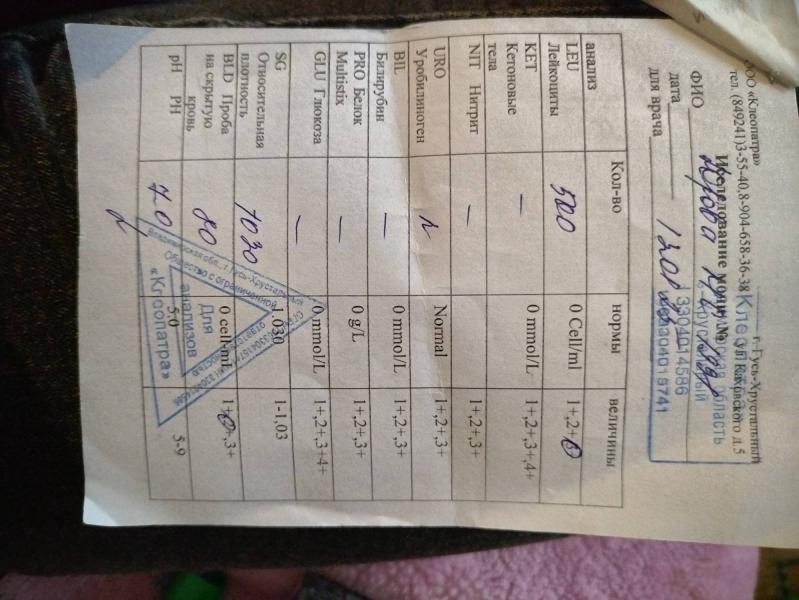 ООО «Клеопатра» г.Гусь-Хрустальный
тел. (849241)3-55-40,8-904-658-36-38 д.5
Исследование мочи №
ФИО
дата
для врача
3304014586
анализ Кол-во нормы величины
LEU Лейкоциты 500 0 Cell/ml 1+,2+
KET Кетоновые тела — 0 mmol/L 1+,2+,3+,4+
NIT Нитрит — 1+,2+,3+
URO Уробилиноген Normal 1+,2+,3+
BIL Билирубин — 0 mmol/L 1+,2+,3+
PRO Белок Multistix — 0 g/L 1+,2+,3+
GLU Глюкоза — 0 mmol/L 1+,2+,3+4+
SG Относительная плотность 1030 1.030 1-1,03
BLD Проба на скрытую кровь 80 0 cell/mL 1+ ,3+
pH PH 7.0 5.0 5-9
Владимирская обл., г. Гусь-Хрустальный
Общество с ограниченной
Для
анализов
«Клеопатра»